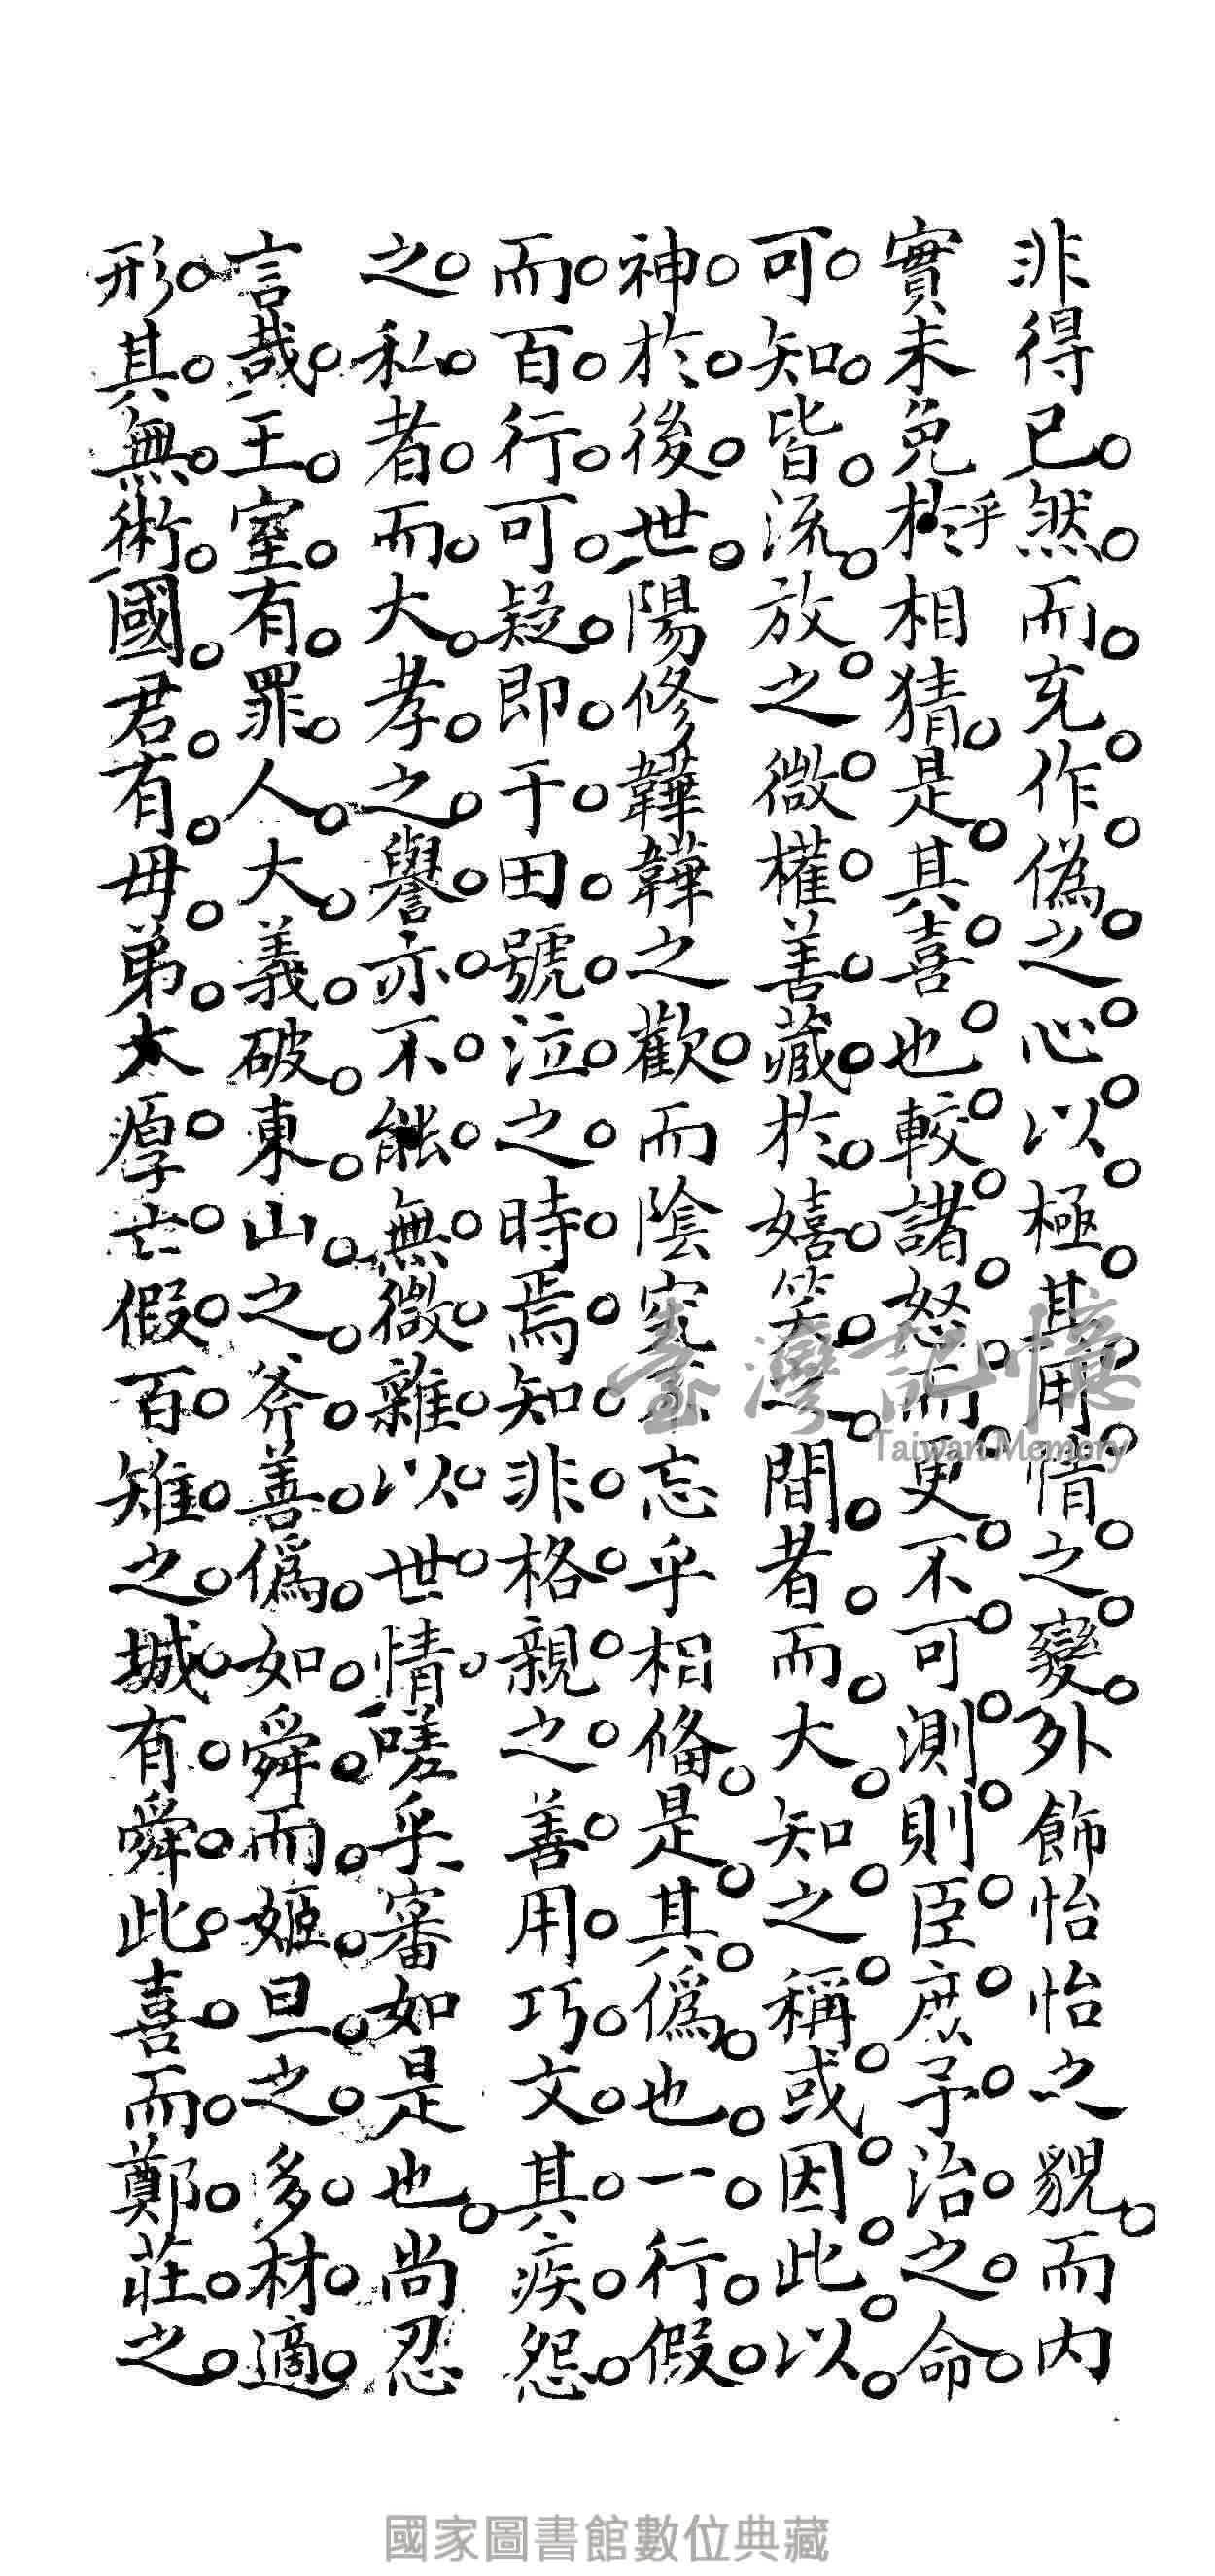 非得已然而充作偽之心以極其用情之變外飾怡怡之貌而內
實未免於乎相猜是其喜也較諸怒而更不可測則臣庶予治之命
可知皆流放之微權善藏於嬉笑之間者而大知之稱或因此以
神於後世陽修韡韡之歡而陰實不忘乎相俻是其偽也一行假
而百行可疑即于田號泣之時焉知非格親之善用巧文其疾怨
之私者而大孝之譽亦不能無微雜以世情嗟乎審如是也尚忍
言哉王室有罪人大義破東山之斧善偽如舜而姬旦之多材適
形其無術國君有母弟太厚亡假百雉之城有舜此喜而鄭莊之
臺灣記憶
Taiwan Memory
國家圖書館數位典藏